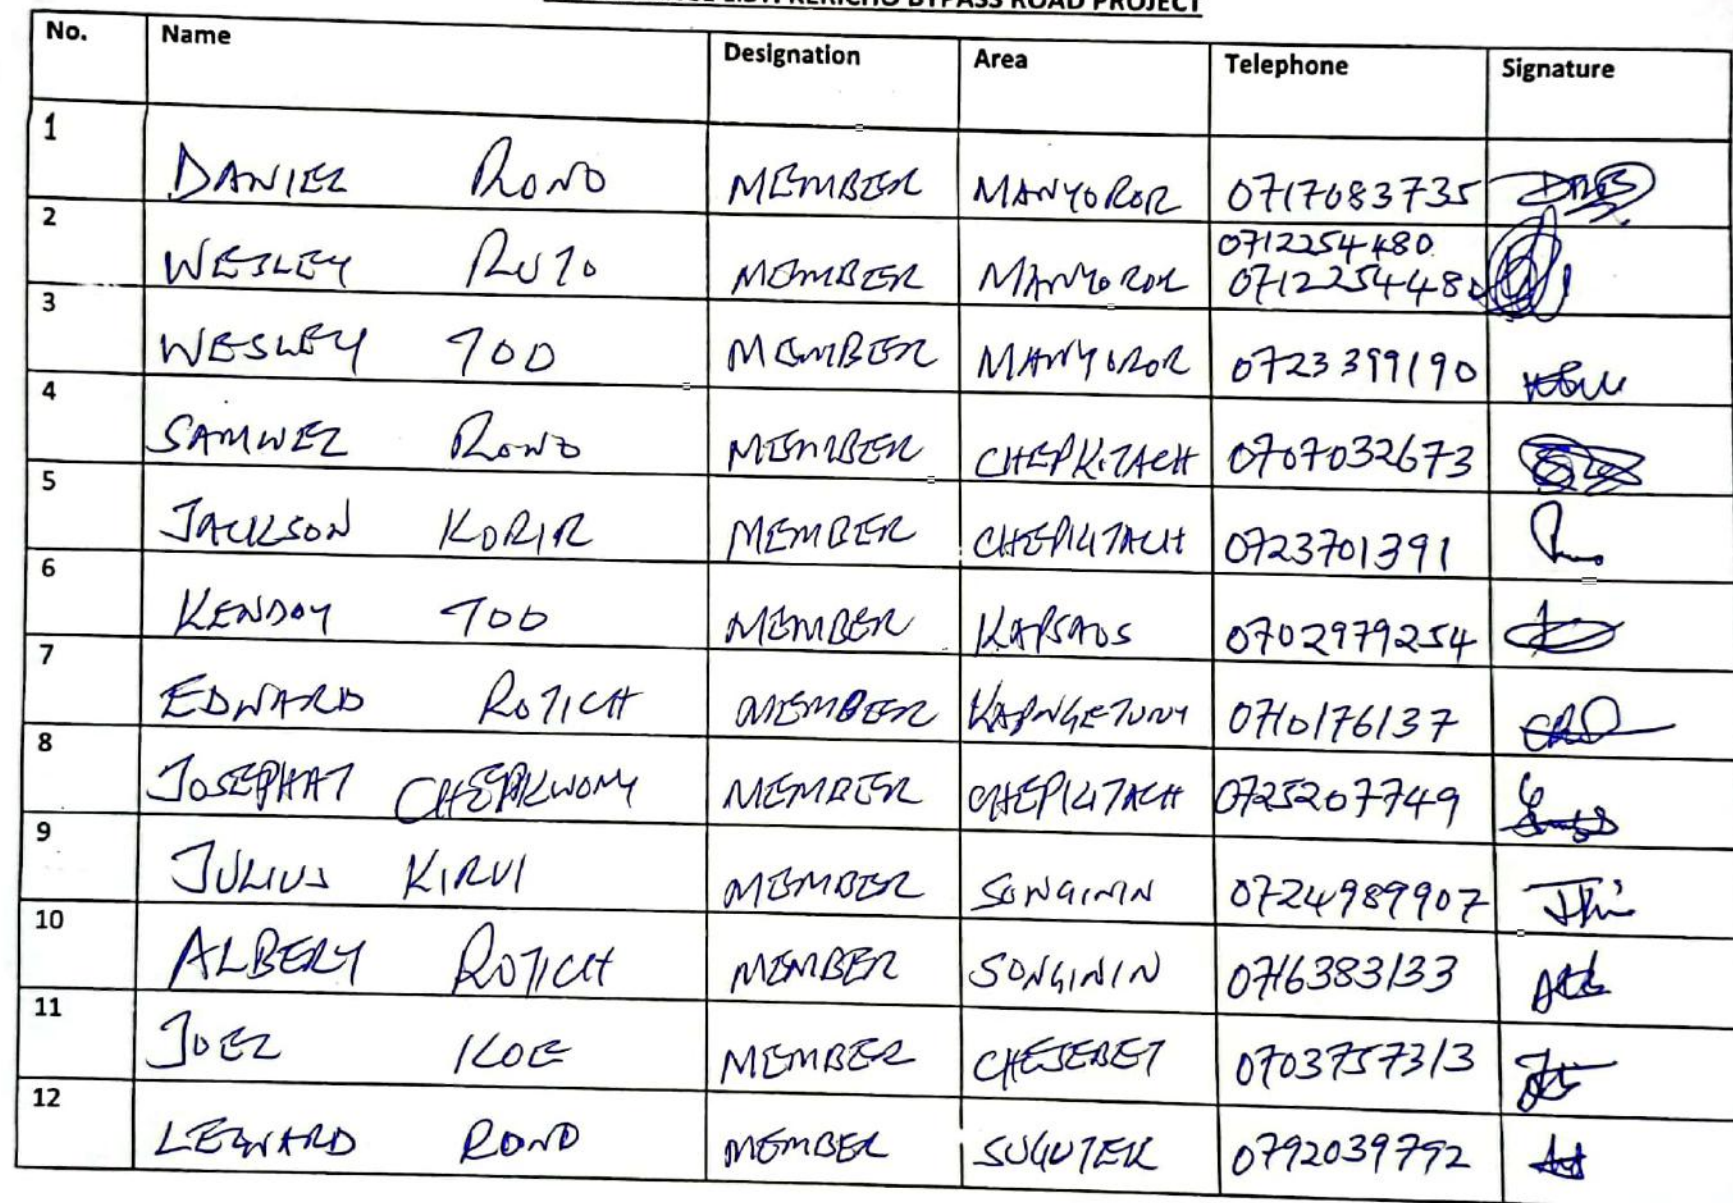 KERICHO BYPASS ROAD PROJECT
No. Name Designation Area Telephone Signature
1 DANIEL RONO MEMBER MANYOROR 0717083735
2 WESLEY RUTO MEMBER MANYOROR 0712254480 0712254480
3 WESLEY TOO MEMBER MANYOROR 0723399190
4 SAMWEL RONO MEMBER CHEPKITACH 0707032673
5 JACKSON KORIR MEMBER CHEPKITACH 0723701391
6 KENDOY TOO MEMBER KAPSAOS 0702979254
7 EDWARD ROTICH MEMBER KAPNGETUNY 0710176137
8 JOSEPHAT CHEPKWONY MEMBER CHEPKITACH 0725207749
9 JULIUS KIRUI MEMBER SONGININ 0724989907
10 ALBERT ROTICH MEMBER SONGININ 0716383133
11 JOEL KOE MEMBER CHEJEBET 0703757313
12 LEONARD RONO MEMBER SUGUTEK 0792039792